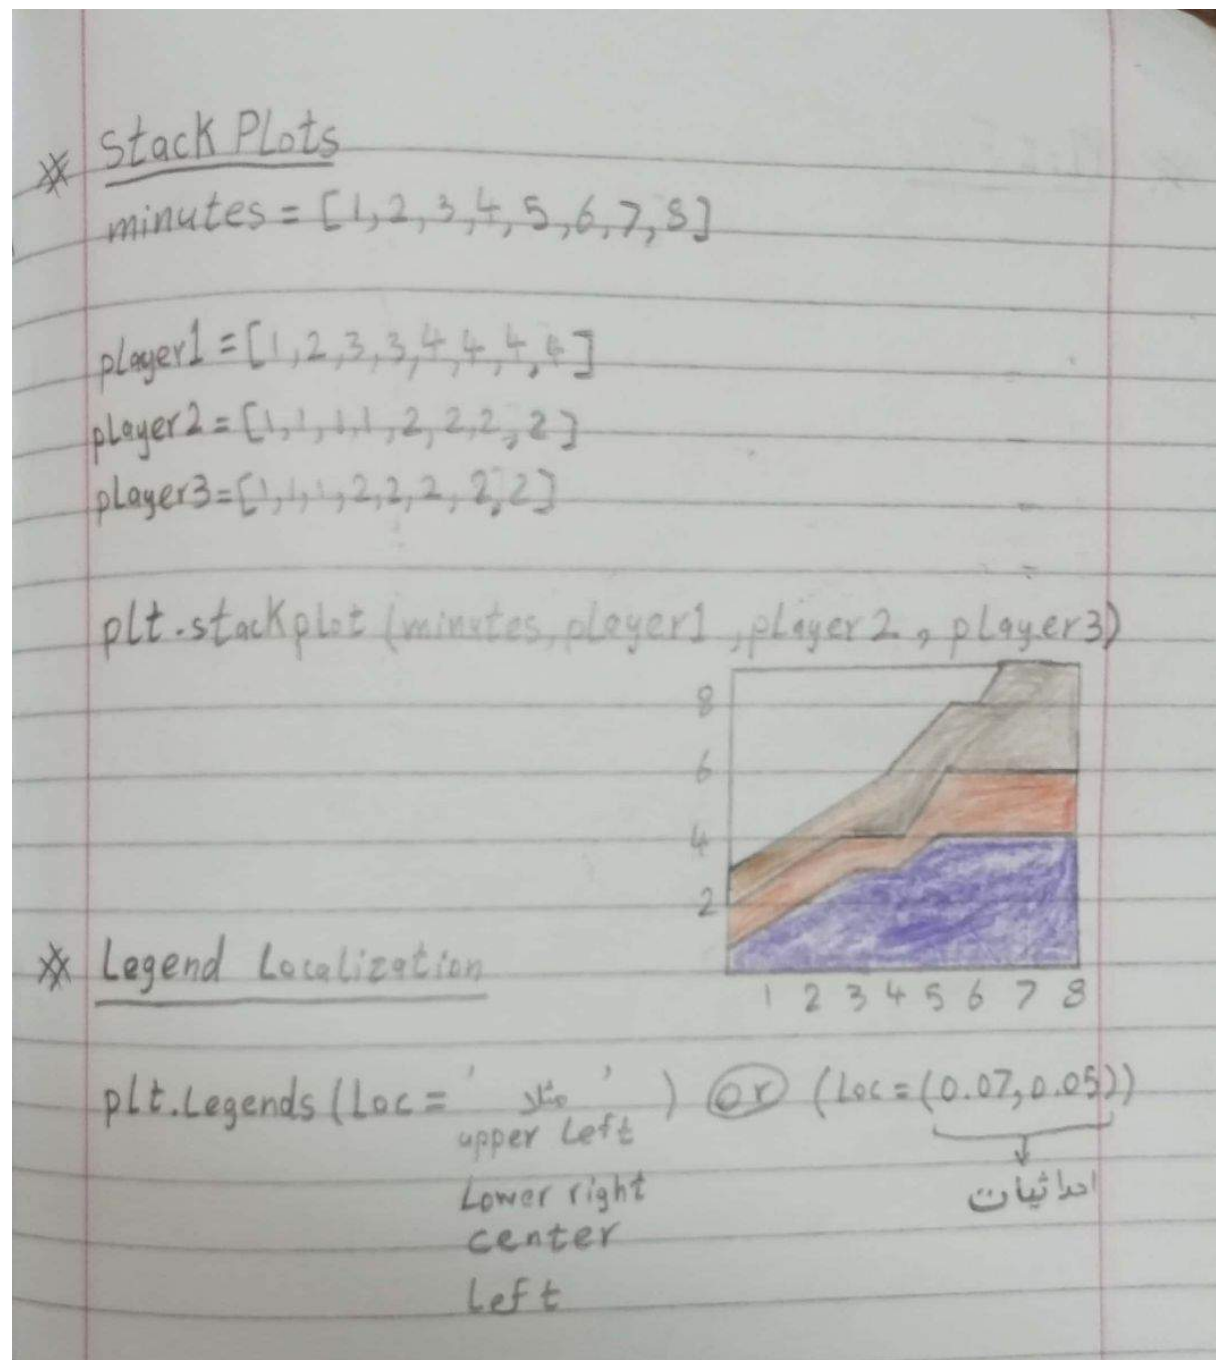 * Stack Plots
minutes = [1,2,3,4,5,6,7,8]
player1 = [1,2,3,3,4,4,4,4]
player2 = [1,1,1,1,2,2,2,2]
player3=[1,1,1,2,2,2,2,2]
plt.stackplot (minutes,player1,player2, player3)
8
6
4
2
1 2 3 4 5 6 7 8
* Legend Localization
plt.Legends (Loc = ' مثلا ' ) or (Loc = (0.07,0.05))
upper Left
Lower right
center
Left
احداثيات